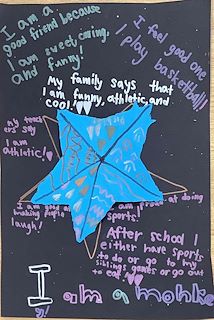 I am a
good friend because
I am sweet, caring,
and funny.
I feel good one
I play basketball!
My family says that
I am funny, athletic, and
cool!
my teach
ers say
I am
athletic!
I am good at
making people
laugh!
am proud at doing
sports!
After school I
either have sports
to do or go to my
siblings games or go out
to eat.
I am a